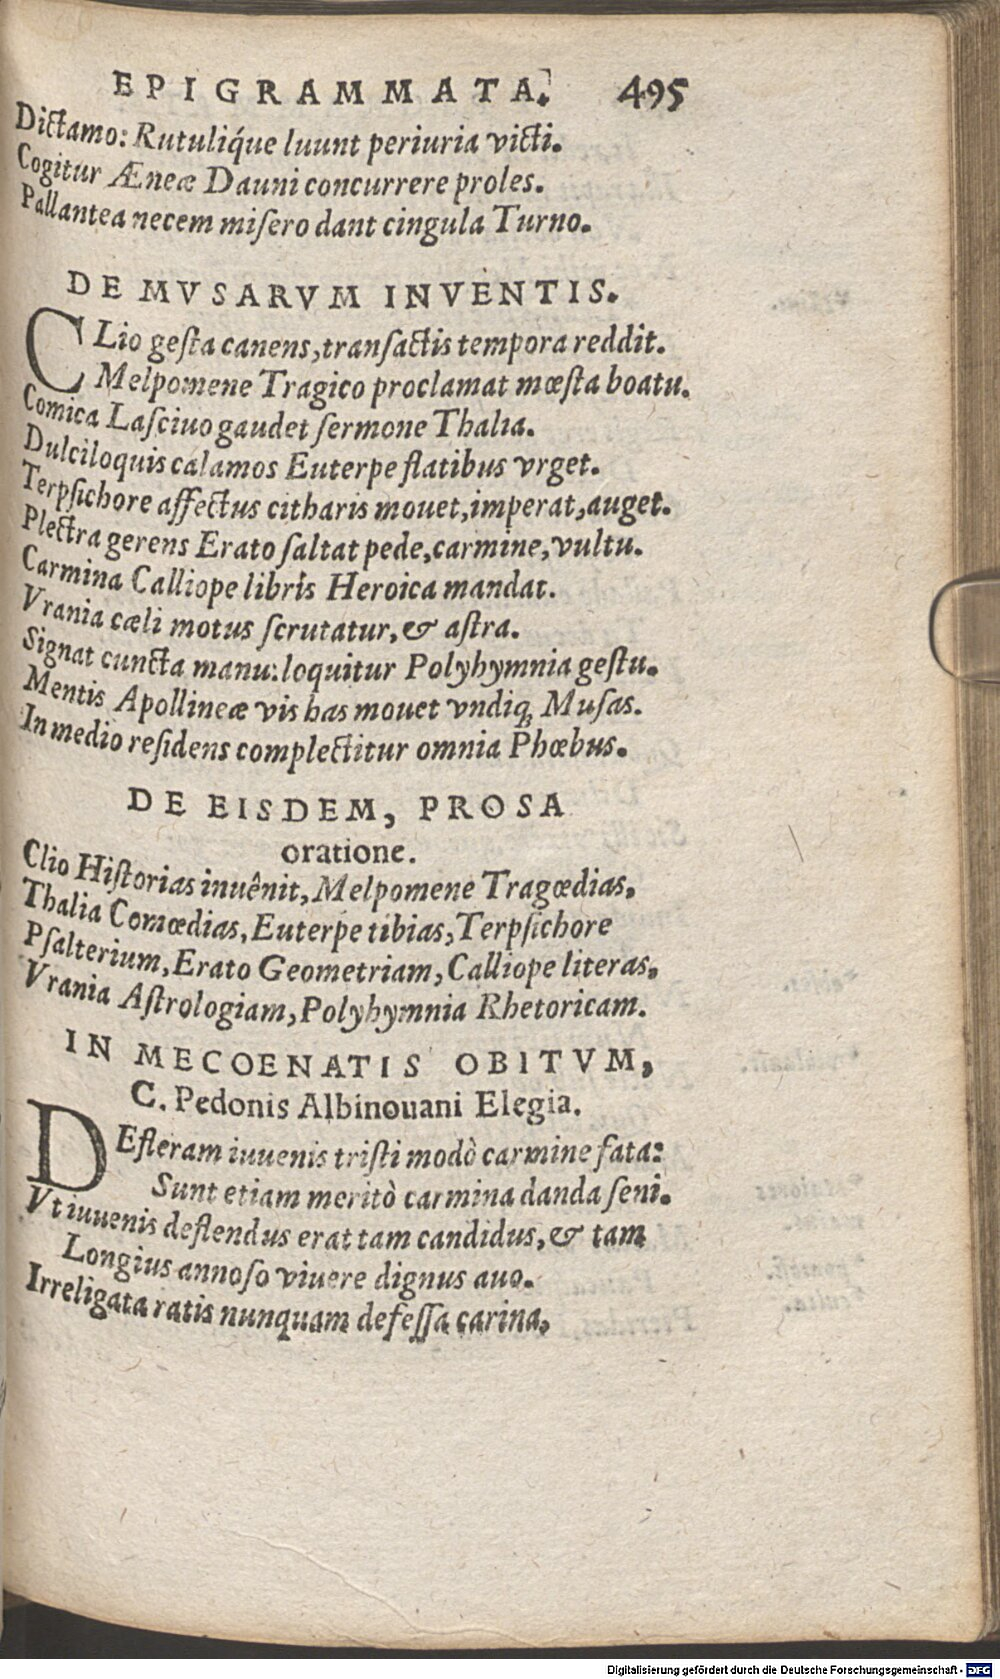 EPIGRAMMATA. 495
Dictamo: Rutuliq́ue luunt periuria victi.
Cogitur Æneæ Dauni concurrere proles.
Pallantea necem miſero dant cingula Turno.
DE MVSARVM INVENTIS.
CLio geſta canens, tranſactis tempora reddit.
Melpomene Tragico proclamat mœſta boatu.
Comica Laſciuo gaudet ſermone Thalia.
Dulciloquis calamos Euterpe flatibus vrget.
Terpſichore affectus citharis mouet, imperat, auget.
Plectra gerens Erato ſaltat pede, carmine, vultu.
Carmina Calliope libris Heroica mandat.
Vrania cæli motus ſcrutatur, & aſtra.
Signat cuncta manu: loquitur Polyhymnia geſtu.
Mentis Apollineæ vis has mouet vndiq; Muſas.
In medio reſidens complectitur omnia Phœbus.
DE EISDEM, PROSA
oratione.
Clio Hiſtorias inuênit, Melpomene Tragœdias,
Thalia Comœdias, Euterpe tibias, Terpſichore
Pſalterium, Erato Geometriam, Calliope literas,
Vrania Aſtrologiam, Polyhymnia Rhetoricam.
IN MECOENATIS OBITVM,
C. Pedonis Albinouani Elegia.
DEfleram iuuenis triſti modò carmine fata:
Sunt etiam meritò carmina danda ſeni.
Vt iuuenis deflendus erat tam candidus, & tam
Longius annoſo viuere dignus auo.
Irreligata ratis nunquam defeſſa carina,
Digitalisierung gefördert durch die Deutsche Forschungsgemeinschaft - DFG